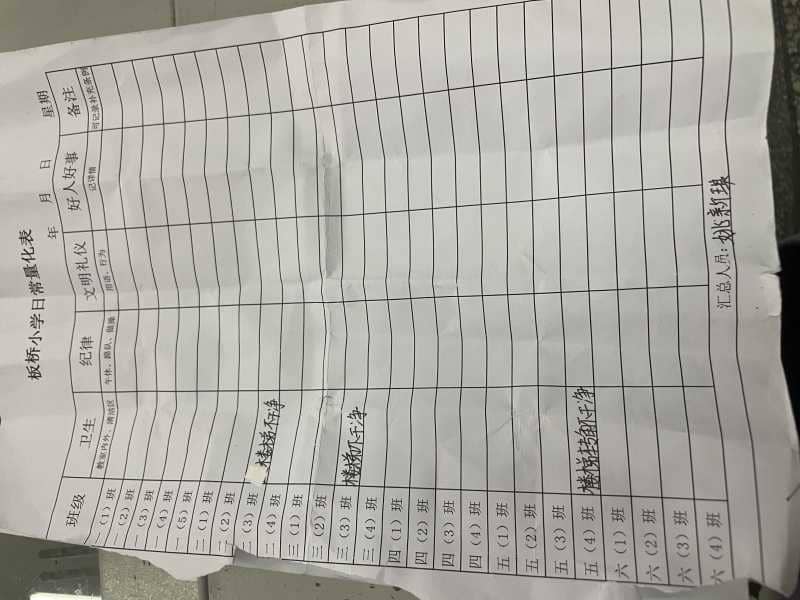 板桥小学日常量化表
年 月 日 星期
班级 卫生 纪律 文明礼仪 好人好事 备注
教室内外、清洁区 午休、路队、做操 用语、行为 记详情 可记录补充条例
一（1）班
一（2）班
一（3）班
一（4）班
一（5）班
二（1）班
二（2）班
二（3）班
二（4）班 楼梯不干净
三（1）班
三（2）班
三（3）班 楼梯不干净
三（4）班
四（1）班
四（2）班
四（3）班
四（4）班
五（1）班
五（2）班
五（3）班
五（4）班 楼梯转角不干净
六（1）班
六（2）班
六（3）班
六（4）班
汇总人员：姚新琪